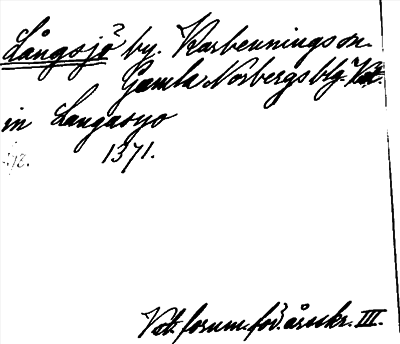 Långsjö by. Karbennings sn.
Gamla Norbergs blg. Vstm.
in Langasyo
1371.
Vst. fornm. för. årsskr. III.